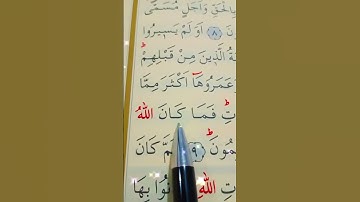 بِالْحَقِّ وَاَجَلٍ مُسَمًّى
﴿٨﴾ اَوَلَمْ يَسٖيرُوا
الَّذٖينَ مِنْ قَبْلِهِمْ
عَمَرُوهَا اَكْثَرَ مِمَّا
فَمَا كَانَ اللّٰهُ
﴿٩﴾ ثُمَّ كَانَ
اللّٰهِ بِهَا